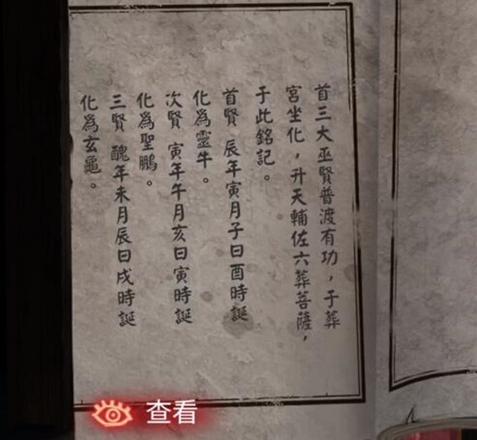 首三大巫賢普渡有功，于葬
宮坐化，升天輔佐六葬菩薩，
于此銘記。
首賢 辰年寅月子日酉時誕
化為靈牛。
次賢 寅年午月亥日寅時誕
化為聖鵬。
三賢 醜年未月辰日戌時誕
化為玄龜。
查看